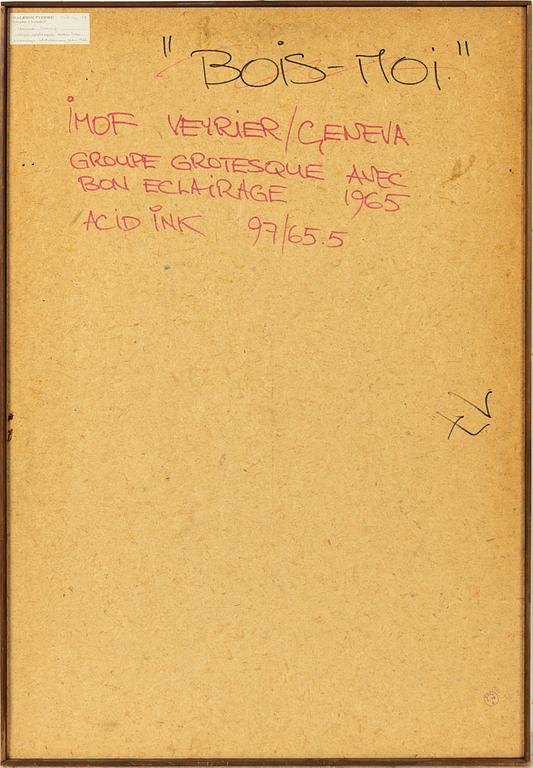 GALERIE PIERRE
"BOiS-MOi"
iMOF VEYRiER/GENEVA
GROUPE GROTESQUE AVEC
BON ECLAiRAGE 1965
ACiD iNK 97/65.5